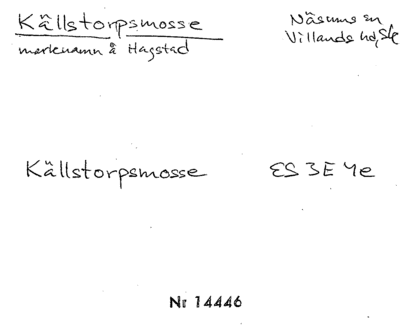 Källstorpsmosse
marknamn å Hagstad
Näsums sn
Villands hd, Sk
Källstorpsmosse
ES 3E 4e
Nr 14446